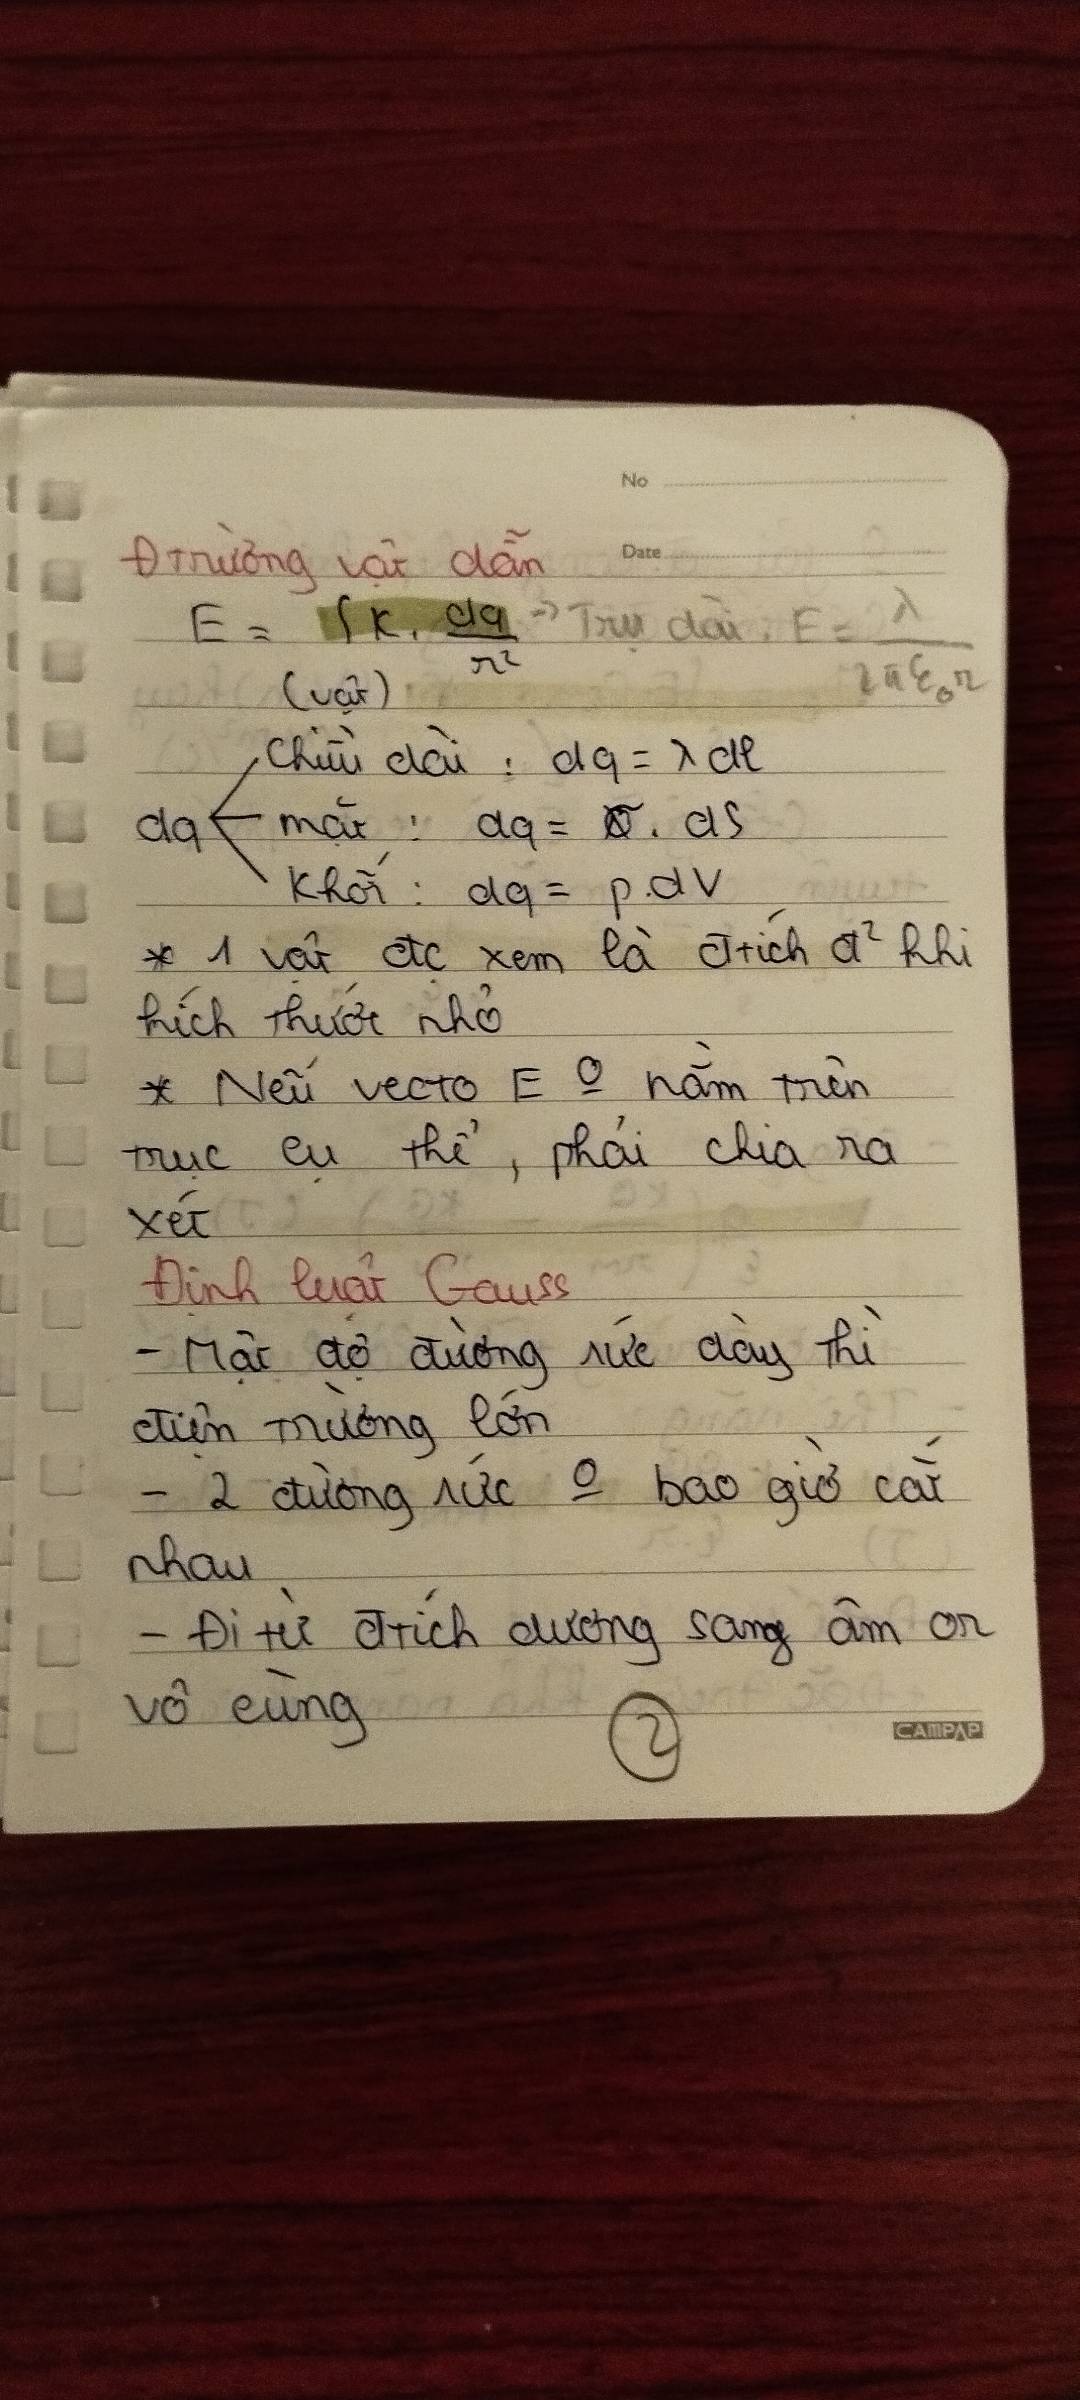 No
Đtrường vật dẫn Date
E = ∫ K. dq/r² → Trụ dài: E = λ/2πε₀r
(vật)
Chiều dài : dq = λdl
dq mặt : dq = σ. dS
Khối : dq = ρ.dV
* 1 vật đc xem là đtích đ² khi
kích thước nhỏ
* Nếu vecto E o nằm trên
trục cụ thể, phải chia ra
xét
Định luật Gauss
- Mật độ đường sức dày thì
điện trường lớn
- 2 đường sức o bao giờ cắt
nhau
- Đi từ đtích dương sang âm or
vô cùng
2
CAMPAP